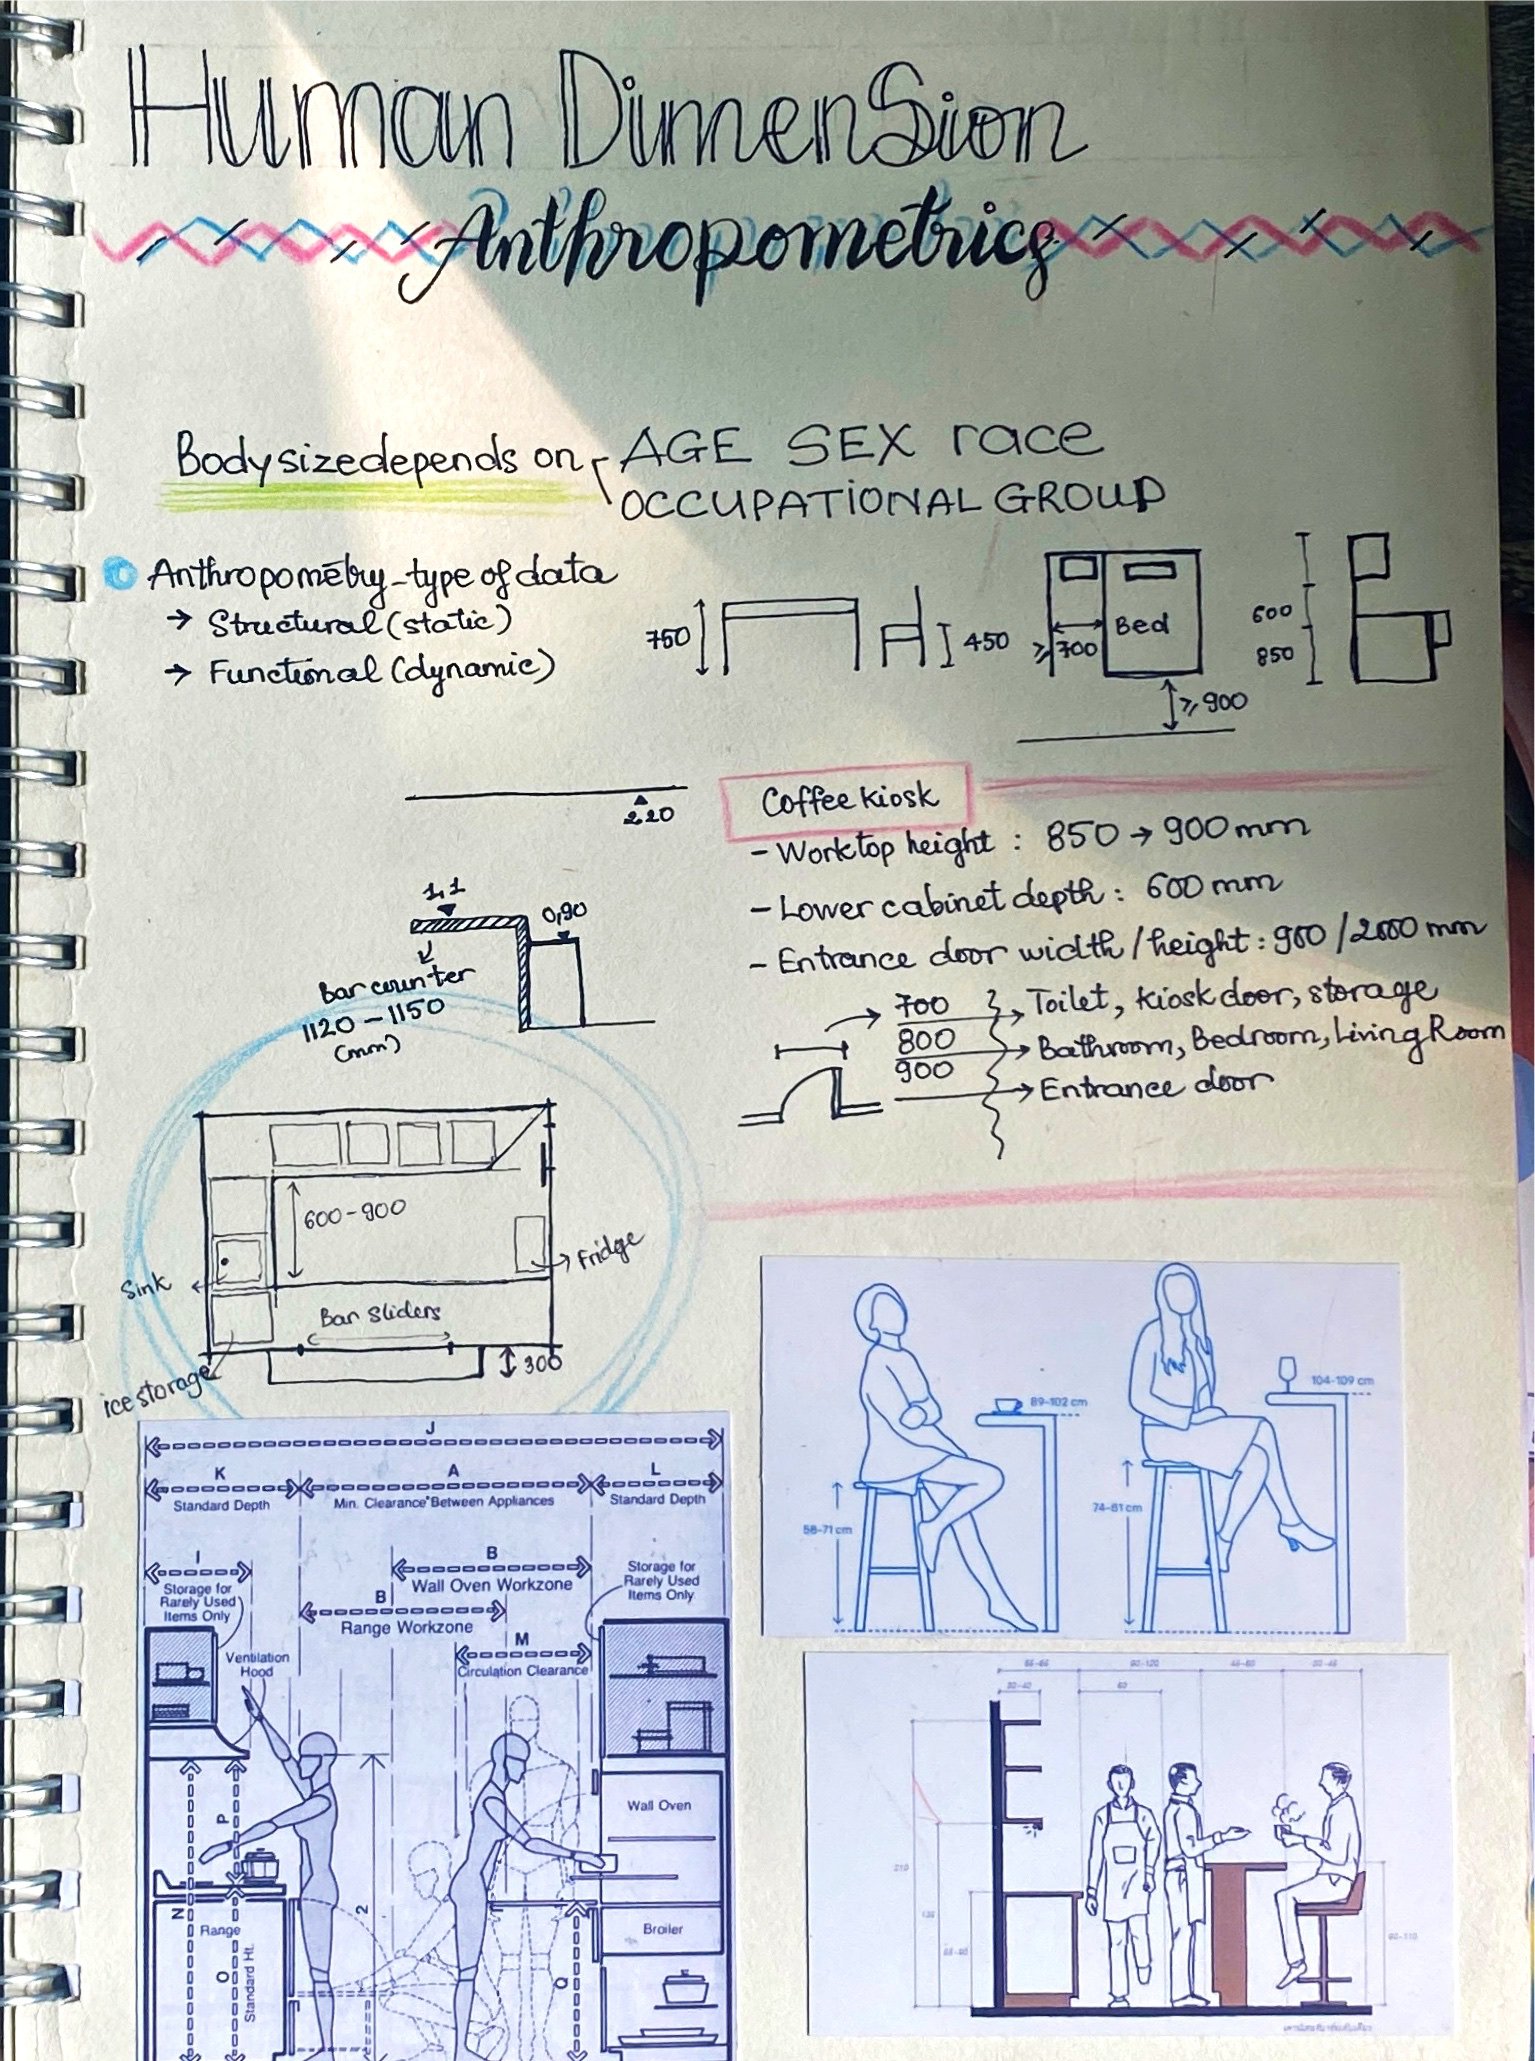 Human Dimension
Anthropometrics
Body size depends on
AGE SEX race
OCCUPATIONAL GROUP
Anthropometry - type of data
→ Structural (static)
→ Functional (dynamic)
750
450
Bed
≥ 700
≥ 900
600
850
2.20
1,1
0,90
Bar counter
1120 - 1150
(mm)
Coffee kiosk
- Worktop height : 850 → 900 mm
- Lower cabinet depth : 600 mm
- Entrance door width / height : 900 / 2000 mm
700 → Toilet, kiosk door, storage
800 → Bathroom, Bedroom, Living Room
900 → Entrance door
600-900
Sink
Fridge
Bar sliders
ice storage
300
J
K A L
Standard Depth Min. Clearance Between Appliances Standard Depth
I
Storage for
Rarely Used
Items Only
B
Wall Oven Workzone
B
Range Workzone
Storage for
Rarely Used
Items Only
M
Circulation Clearance
Ventilation
Hood
P
N
2
Range
O
Standard Ht.
Q
Wall Oven
Broiler
89-102 cm
58-71 cm
104-109 cm
74-81 cm
90-120
30-40
60
210